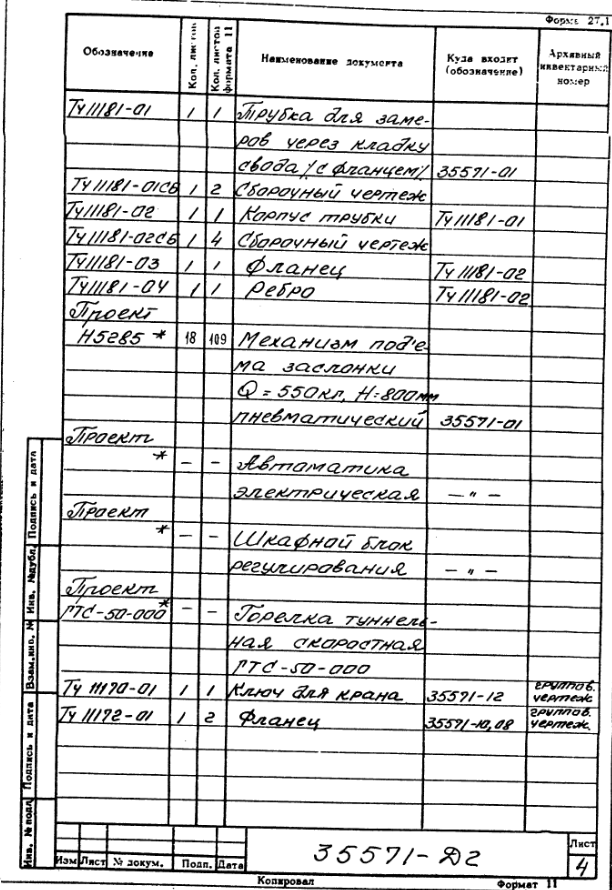 Форма 27.1
Обозначение Кол. листов Кол. листов формата 11 Наименование документа Куда входит (обозначение) Архивный инвентарный номер
Ту11181-01 1 1 Трубка для заме-
ров через кладку
свода /с фланцем/ 35571-01
Ту11181-01СБ 1 2 Сборочный чертеж
Ту11181-02 1 1 Корпус трубки Ту11181-01
Ту11181-02СБ 1 4 Сборочный чертеж
Ту11181-03 1 1 Фланец Ту11181-02
Ту11181-04 1 1 Ребро Ту11181-02
Проект
Н5285 * 18 109 Механизм подъе-
ма заслонки
Q = 550кл, Н=800мм
пневматический 35571-01
Проект
* – – Автоматика
электрическая – " –
Проект
* – – Шкафной блок
регулирования – " –
Проект
ГТС-50-000 * – – Горелка туннель-
ная скоростная
ГТС-50-000
Ту 11170-01 1 1 Ключ для крана 35571-12 группов. чертеж
Ту 11172-01 1 2 Фланец 35571-10,08 группов. чертеж.
Инв. № подл. Подпись и дата Взам.инв. № Инв. №дубл. Подпись и дата
Изм Лист № докум. Подп. Дата
35571-Д2
Лист
4
Копировал Формат 11